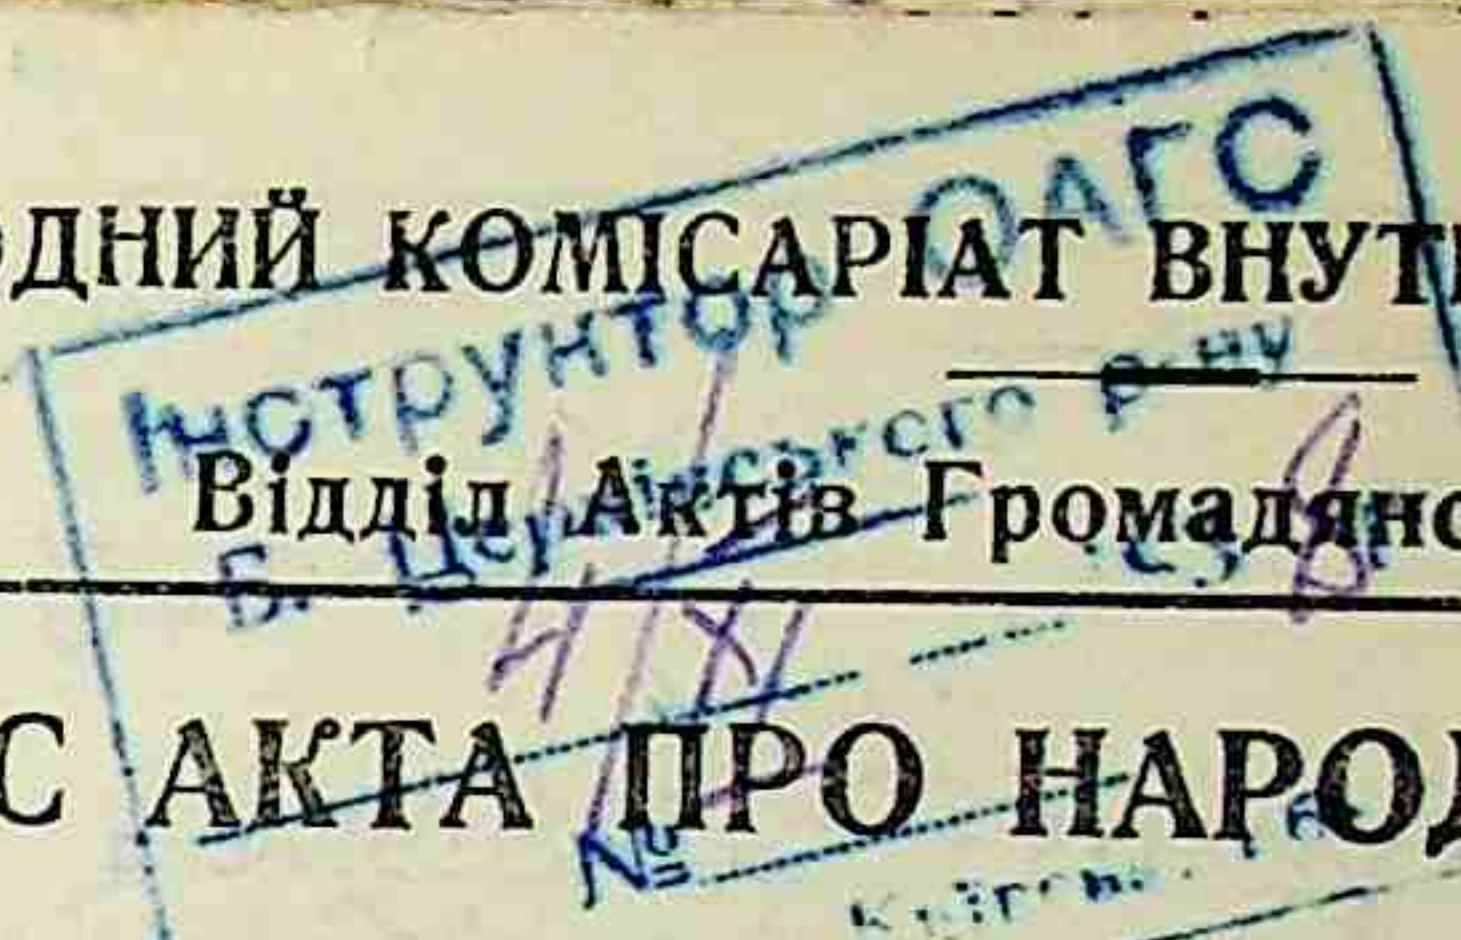 ОДНИЙ КОМІСАРІАТ ВНУТР
Відділ Актів Громадянс
С АКТА ПРО НАРОД
Інструктор ОАГС
Б. Церківського р-ну
4/XI 8
№